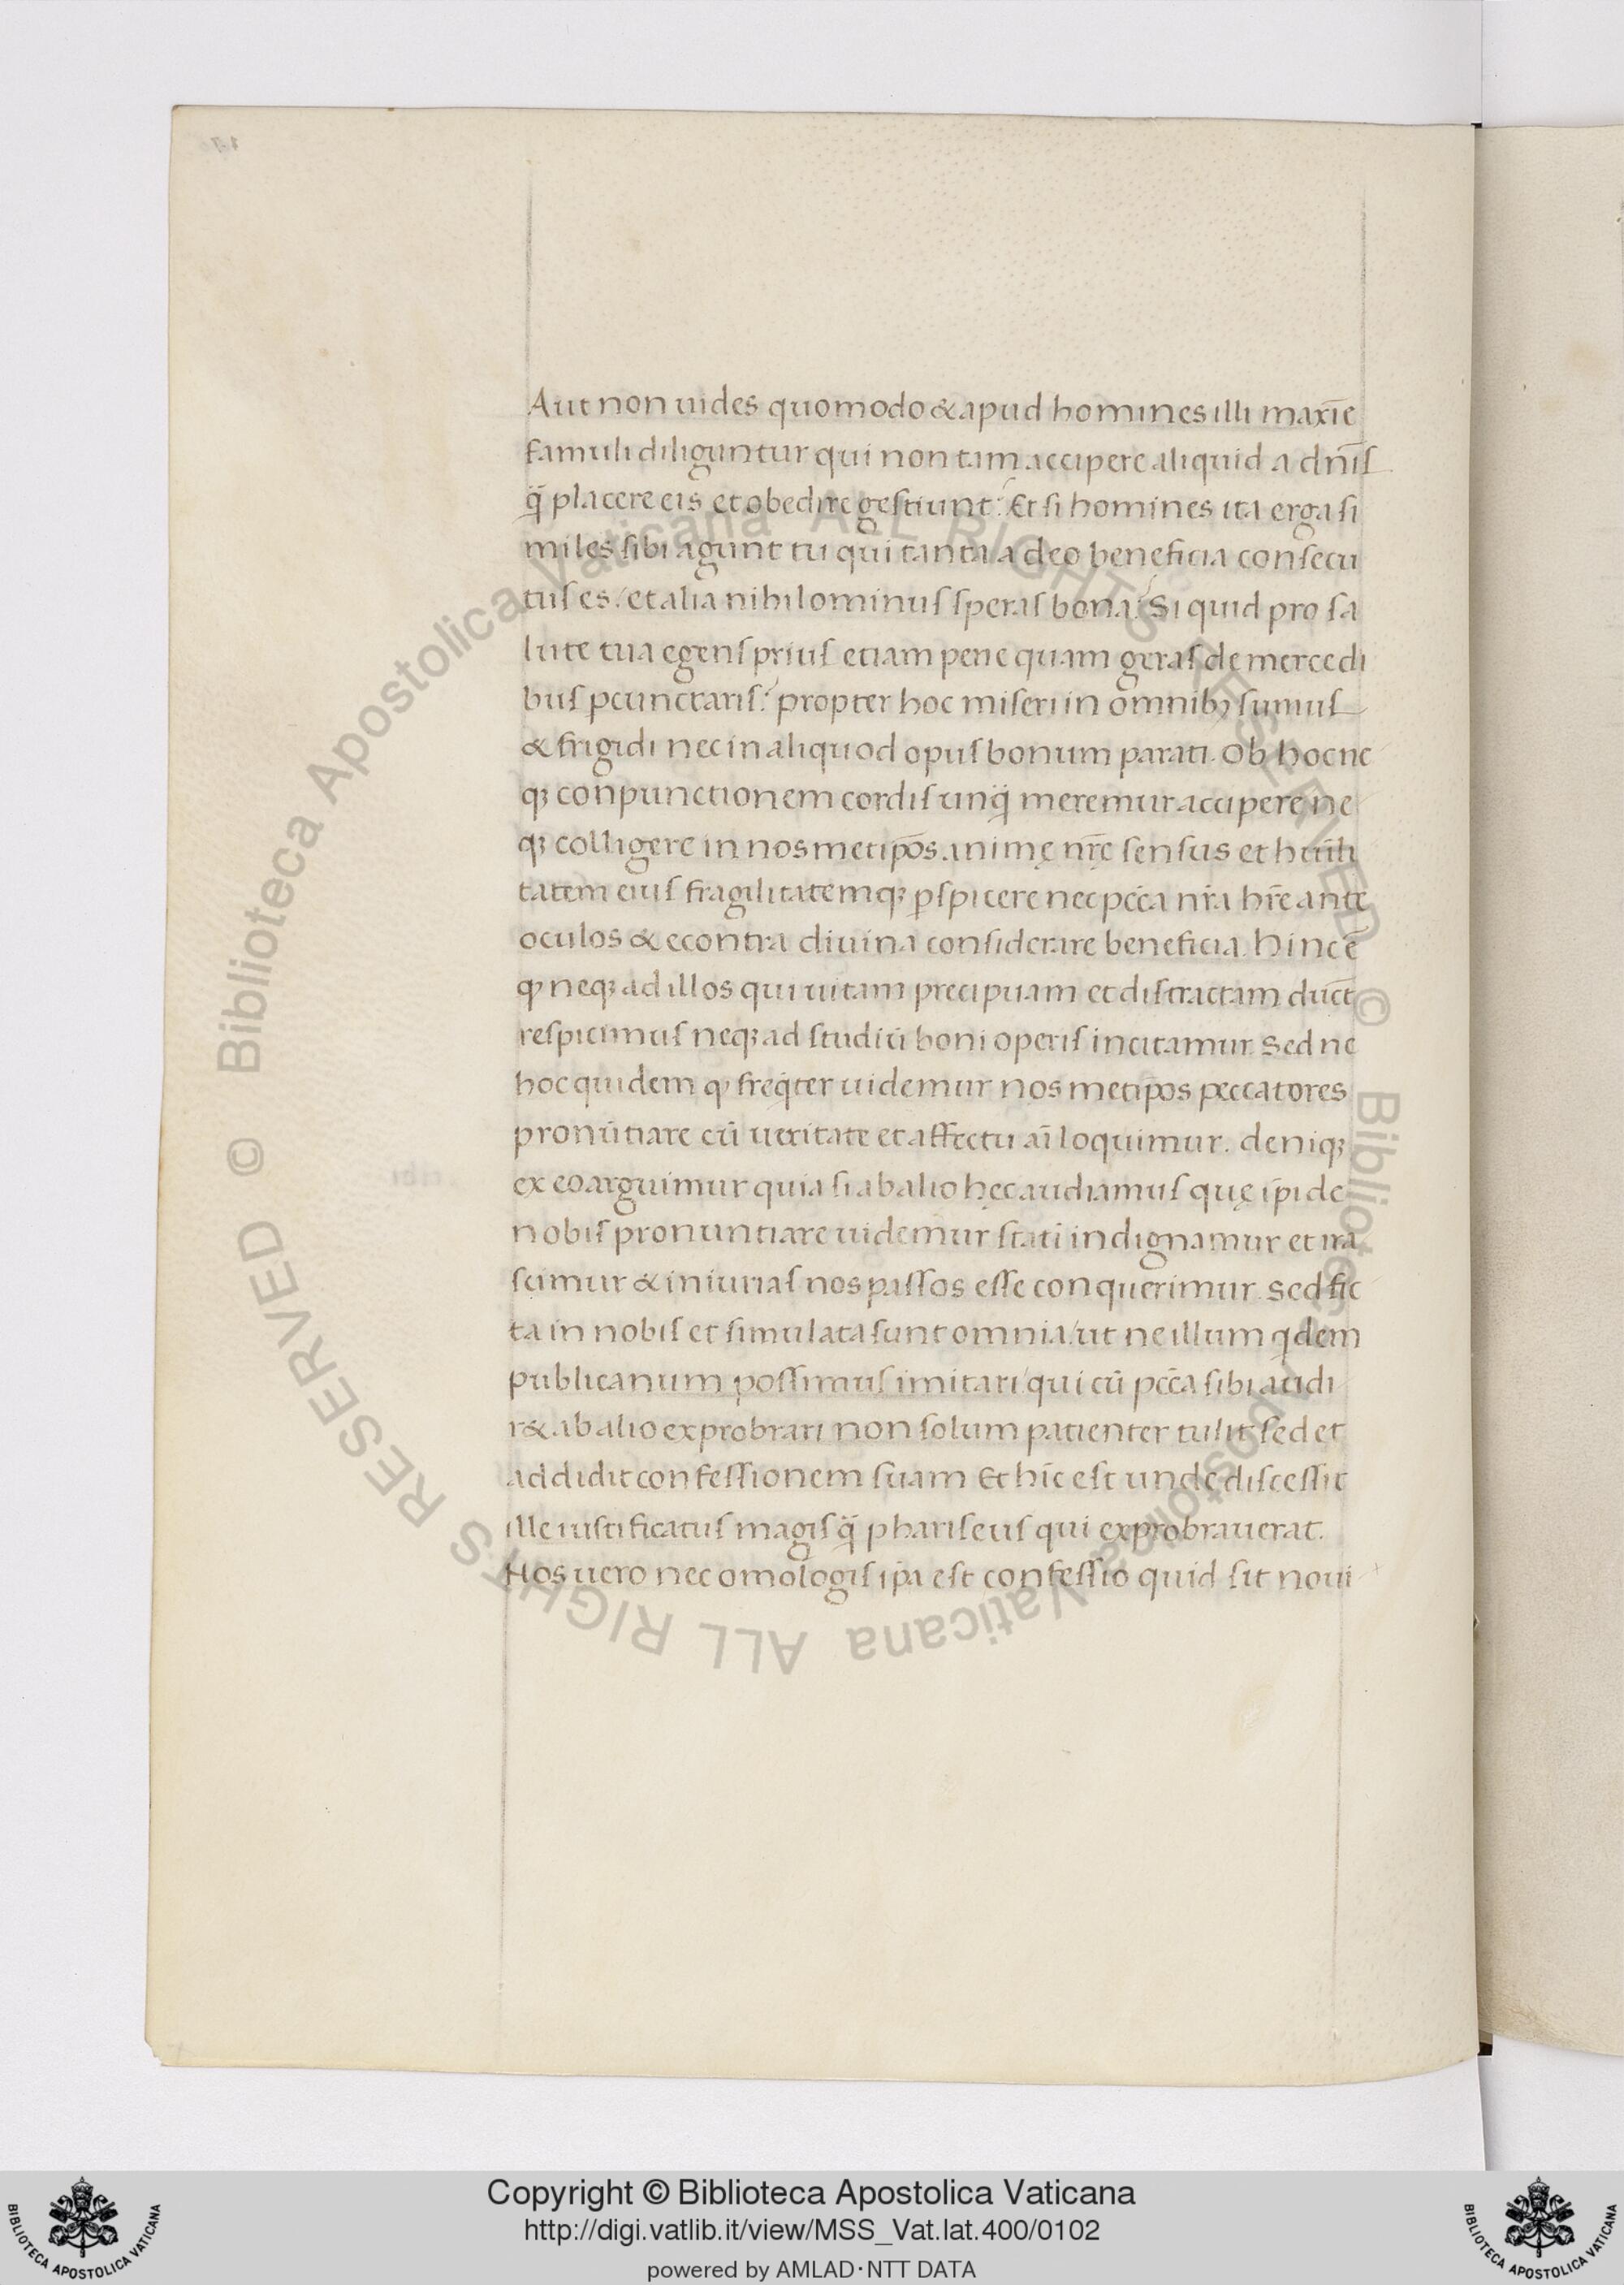 Aut non uides quomodo & apud homines illi maxīe
famuli diliguntur qui non tam accipere aliquid a dn̄iſ
q̄ placere eis et obedire geſtiunt? Et ſi homines ita erga ſi
miles ſibi agunt tu qui tanta a deo beneficia conſecu
tuſ es / et alia nihilominuſ ſperaſ bona? Si quid pro ſa
lute tua egenſ priuſ etiam pene quam geraſ de mercedi
buſ ꝑcunctariſ? propter hoc miſeri in omnibꝫ ſumuſ
& frigidi nec in aliquod opuſ bonum parati. Ob hoc ne
qꝫ conpunctionem cordiſ unq̄ meremur accipere ne
qꝫ colligere in nosmetip̄os animę nr̄ę ſenſus et humili
tatem eiuſ fragilitatemqꝫ ꝑſpicere nec pc̄c̄a nr̄a hr̄e ante
oculos & econtra diuina conſiderare beneficia. hinc ē
ꝙ neqꝫ ad illos qui uitam precipuam et diſtractam duc̄t
reſpicimuſ neqꝫ ad ſtudiū boni operiſ incitamur. Sed ne
hoc quidem ꝙ freq̄ter uidemur nos metip̄os peccatores
pronūtiare cū ueritate et affectu aī loquimur. deniqꝫ
ex eo arguimur quia ſi ab alio hęc audiamuſ quę ip̄i de
nobiſ pronuntiare uidemur ſtatī indignamur et ira
ſcimur & iniuriaſ nos paſſos eſſe conquerimur. Sed fic
ta in nobiſ et ſimulata ſunt omnia / ut ne illum qdem
publicanum poſſimuſ imitari / qui cū pc̄c̄a ſibi audi
r& ab alio exprobrari non ſolum patienter tulit ſed et
addidit confeſſionem ſuam Et hīc eſt unde diſceſſit
ille iuſtificatuſ magiſ q̄ phariſeuſ qui exprobrauerat.
Nos uero nec omologiſ ip̄a eſt confeſſio quid ſit noui
Copyright © Biblioteca Apostolica Vaticana
http://digi.vatlib.it/view/MSS_Vat.lat.400/0102
powered by AMLAD·NTT DATA
BIBLIOTECA APOSTOLICA VATICANA
BIBLIOTECA APOSTOLICA VATICANA
© Biblioteca Apostolica Vaticana ALL RIGHTS RESERVED © Biblioteca Apostolica Vaticana ALL RIGHTS RESERVED